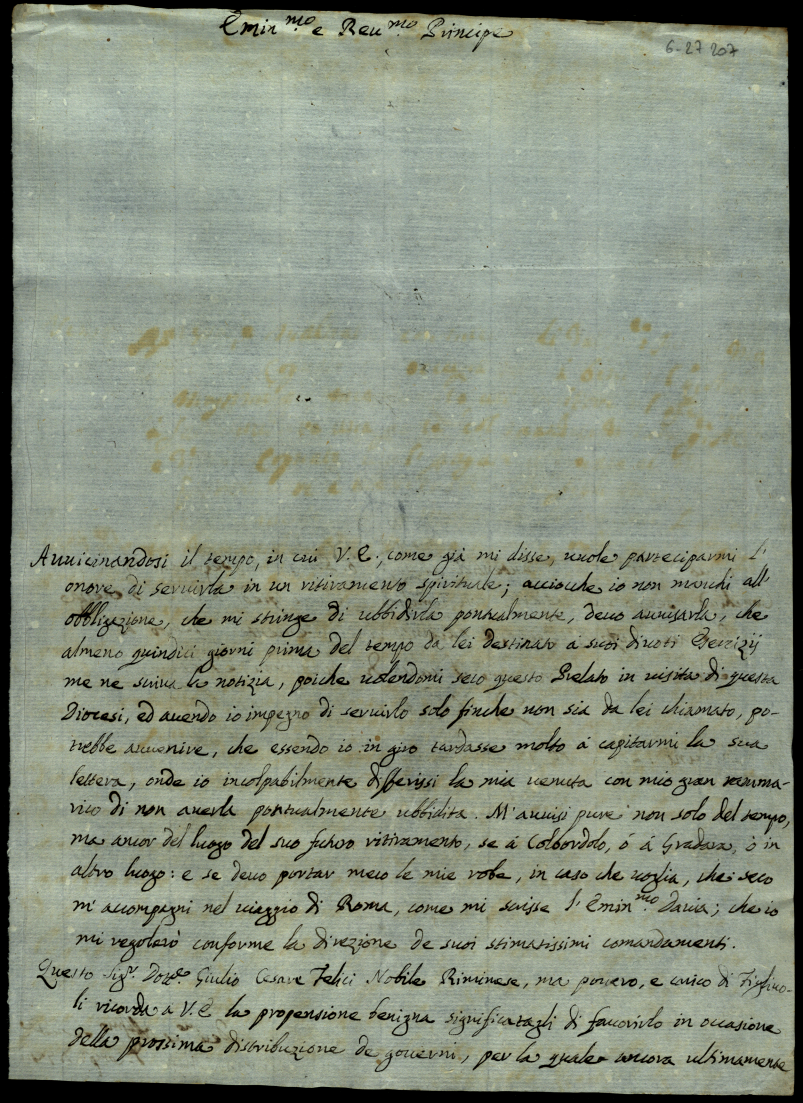 Emin.mo e Reu.mo Principe
6-27 207
Auuicinandosi il tempo, in cui V. E., come già mi disse, uuole parteciparmi l'
onore di seruirla in un ritiramento spirituale; acciocche io non manchi all'
obbligazione, che mi stringe di ubbidirla pontualmente, deuo auuisarla, che
almeno quindici giorni prima del tempo da lei destinato à suoi diuoti Esercizij
me ne scriua la notizia, poiche uolendomi seco questo Prelato in uisita di questa
Diocesi, ed auendo io impegno di seruirlo solo finche non sia da lei chiamato, po-
trebbe auuenire, che essendo io in giro tardasse molto à capitarmi la sua
lettera, onde io incolpabilmente differissi la mia uenuta con mio gran ramma-
rico di non auerla pontualmente ubbidita. M'auuisi pure non solo del tempo,
ma ancor del luogo del suo futuro ritiramento, se à Colbordolo, ò à Gradara, ò in
altro luogo: e se deuo portar meco le mie robe, in caso che uoglia, che seco
m'accompagni nel uiaggio di Roma, come mi scrisse l'Emin.mo Dauia; che io
mi regolerò conforme la direzione de suoi stimatissimi comandamenti.
Questo Sig.r Dott.e Giulio Cesare Felici Nobile Riminese, ma pouero, e carico di Figliuo-
li ricorda à V. E la propensione benigna significatagli di fauorirlo in occasione
della prossima distribuzione de gouerni, per la quale ancora ultimamente